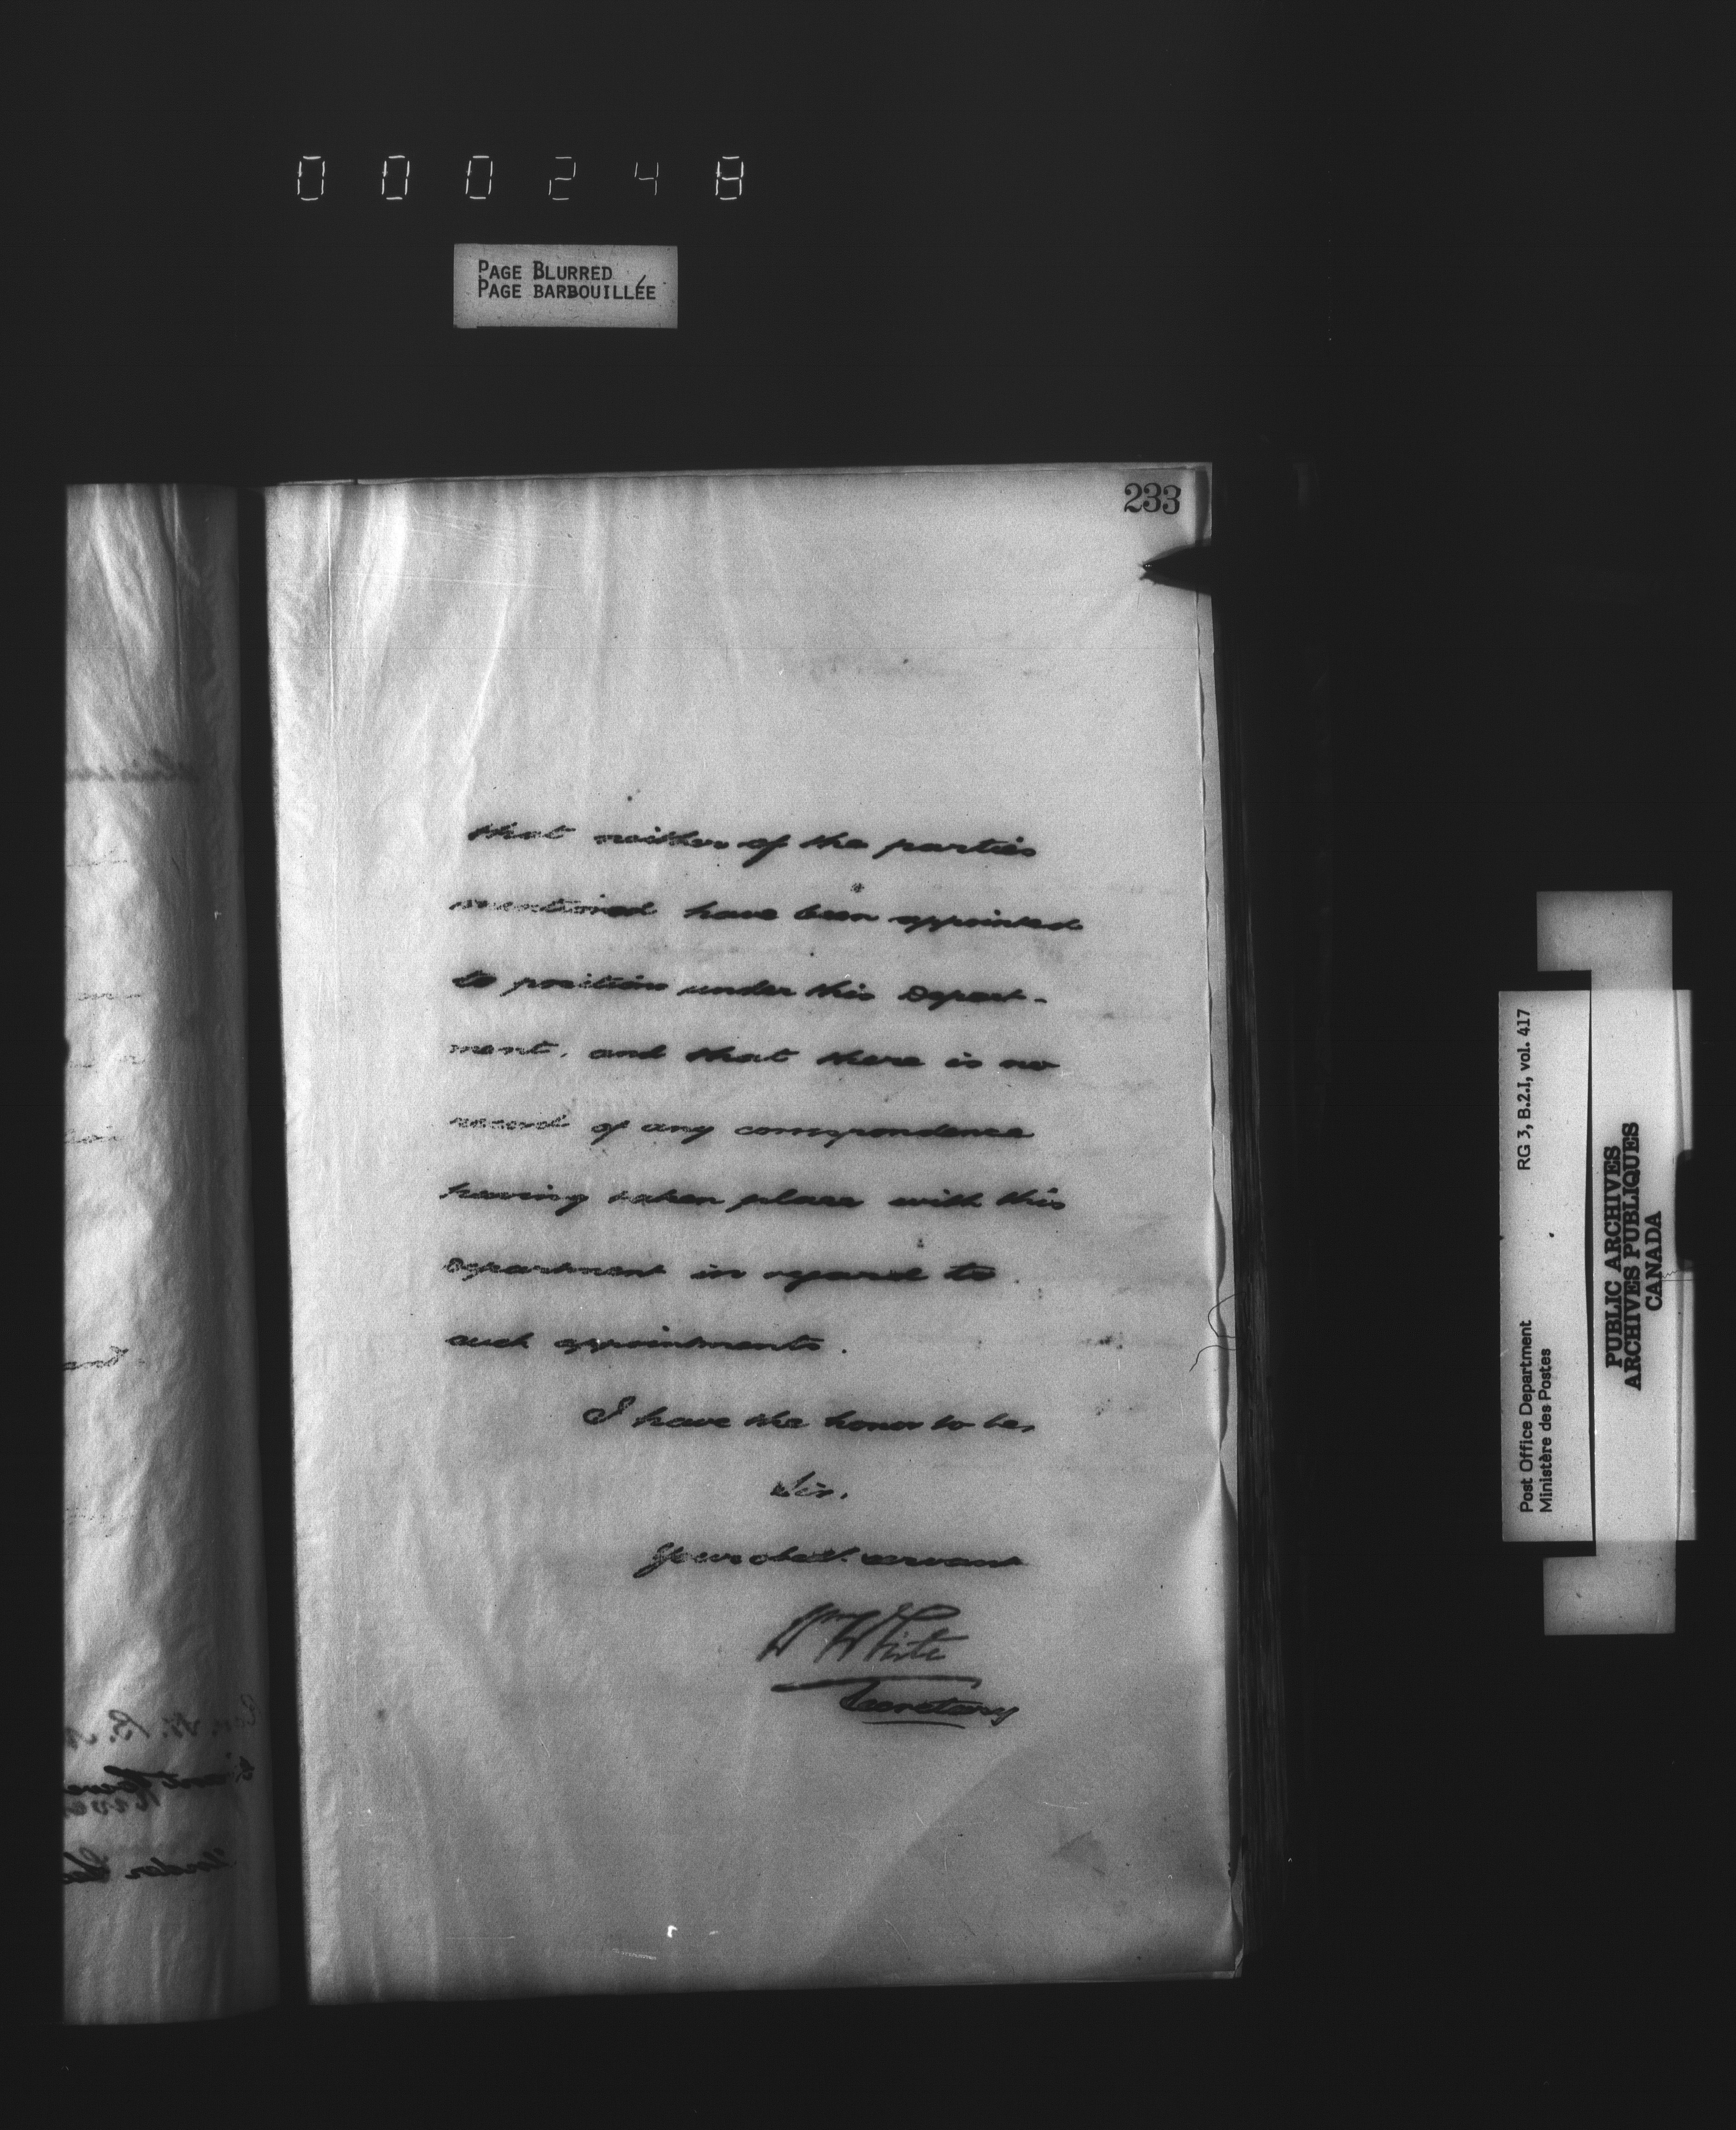 000248
PAGE BLURRED
PAGE BARBOUILLÉE
233
that neither of the parties
mentioned have been appointed
to position under this Depart-
ment, and that there is no
record of any correspondence
having taken place with this
Department in regard to
such appointments.
I have the honor to be,
Sir,
Your obdt. servant
Wm White
Secretary
Post Office Department RG 3, B.2.I, vol. 417
Ministère des Postes
PUBLIC ARCHIVES
ARCHIVES PUBLIQUES
CANADA